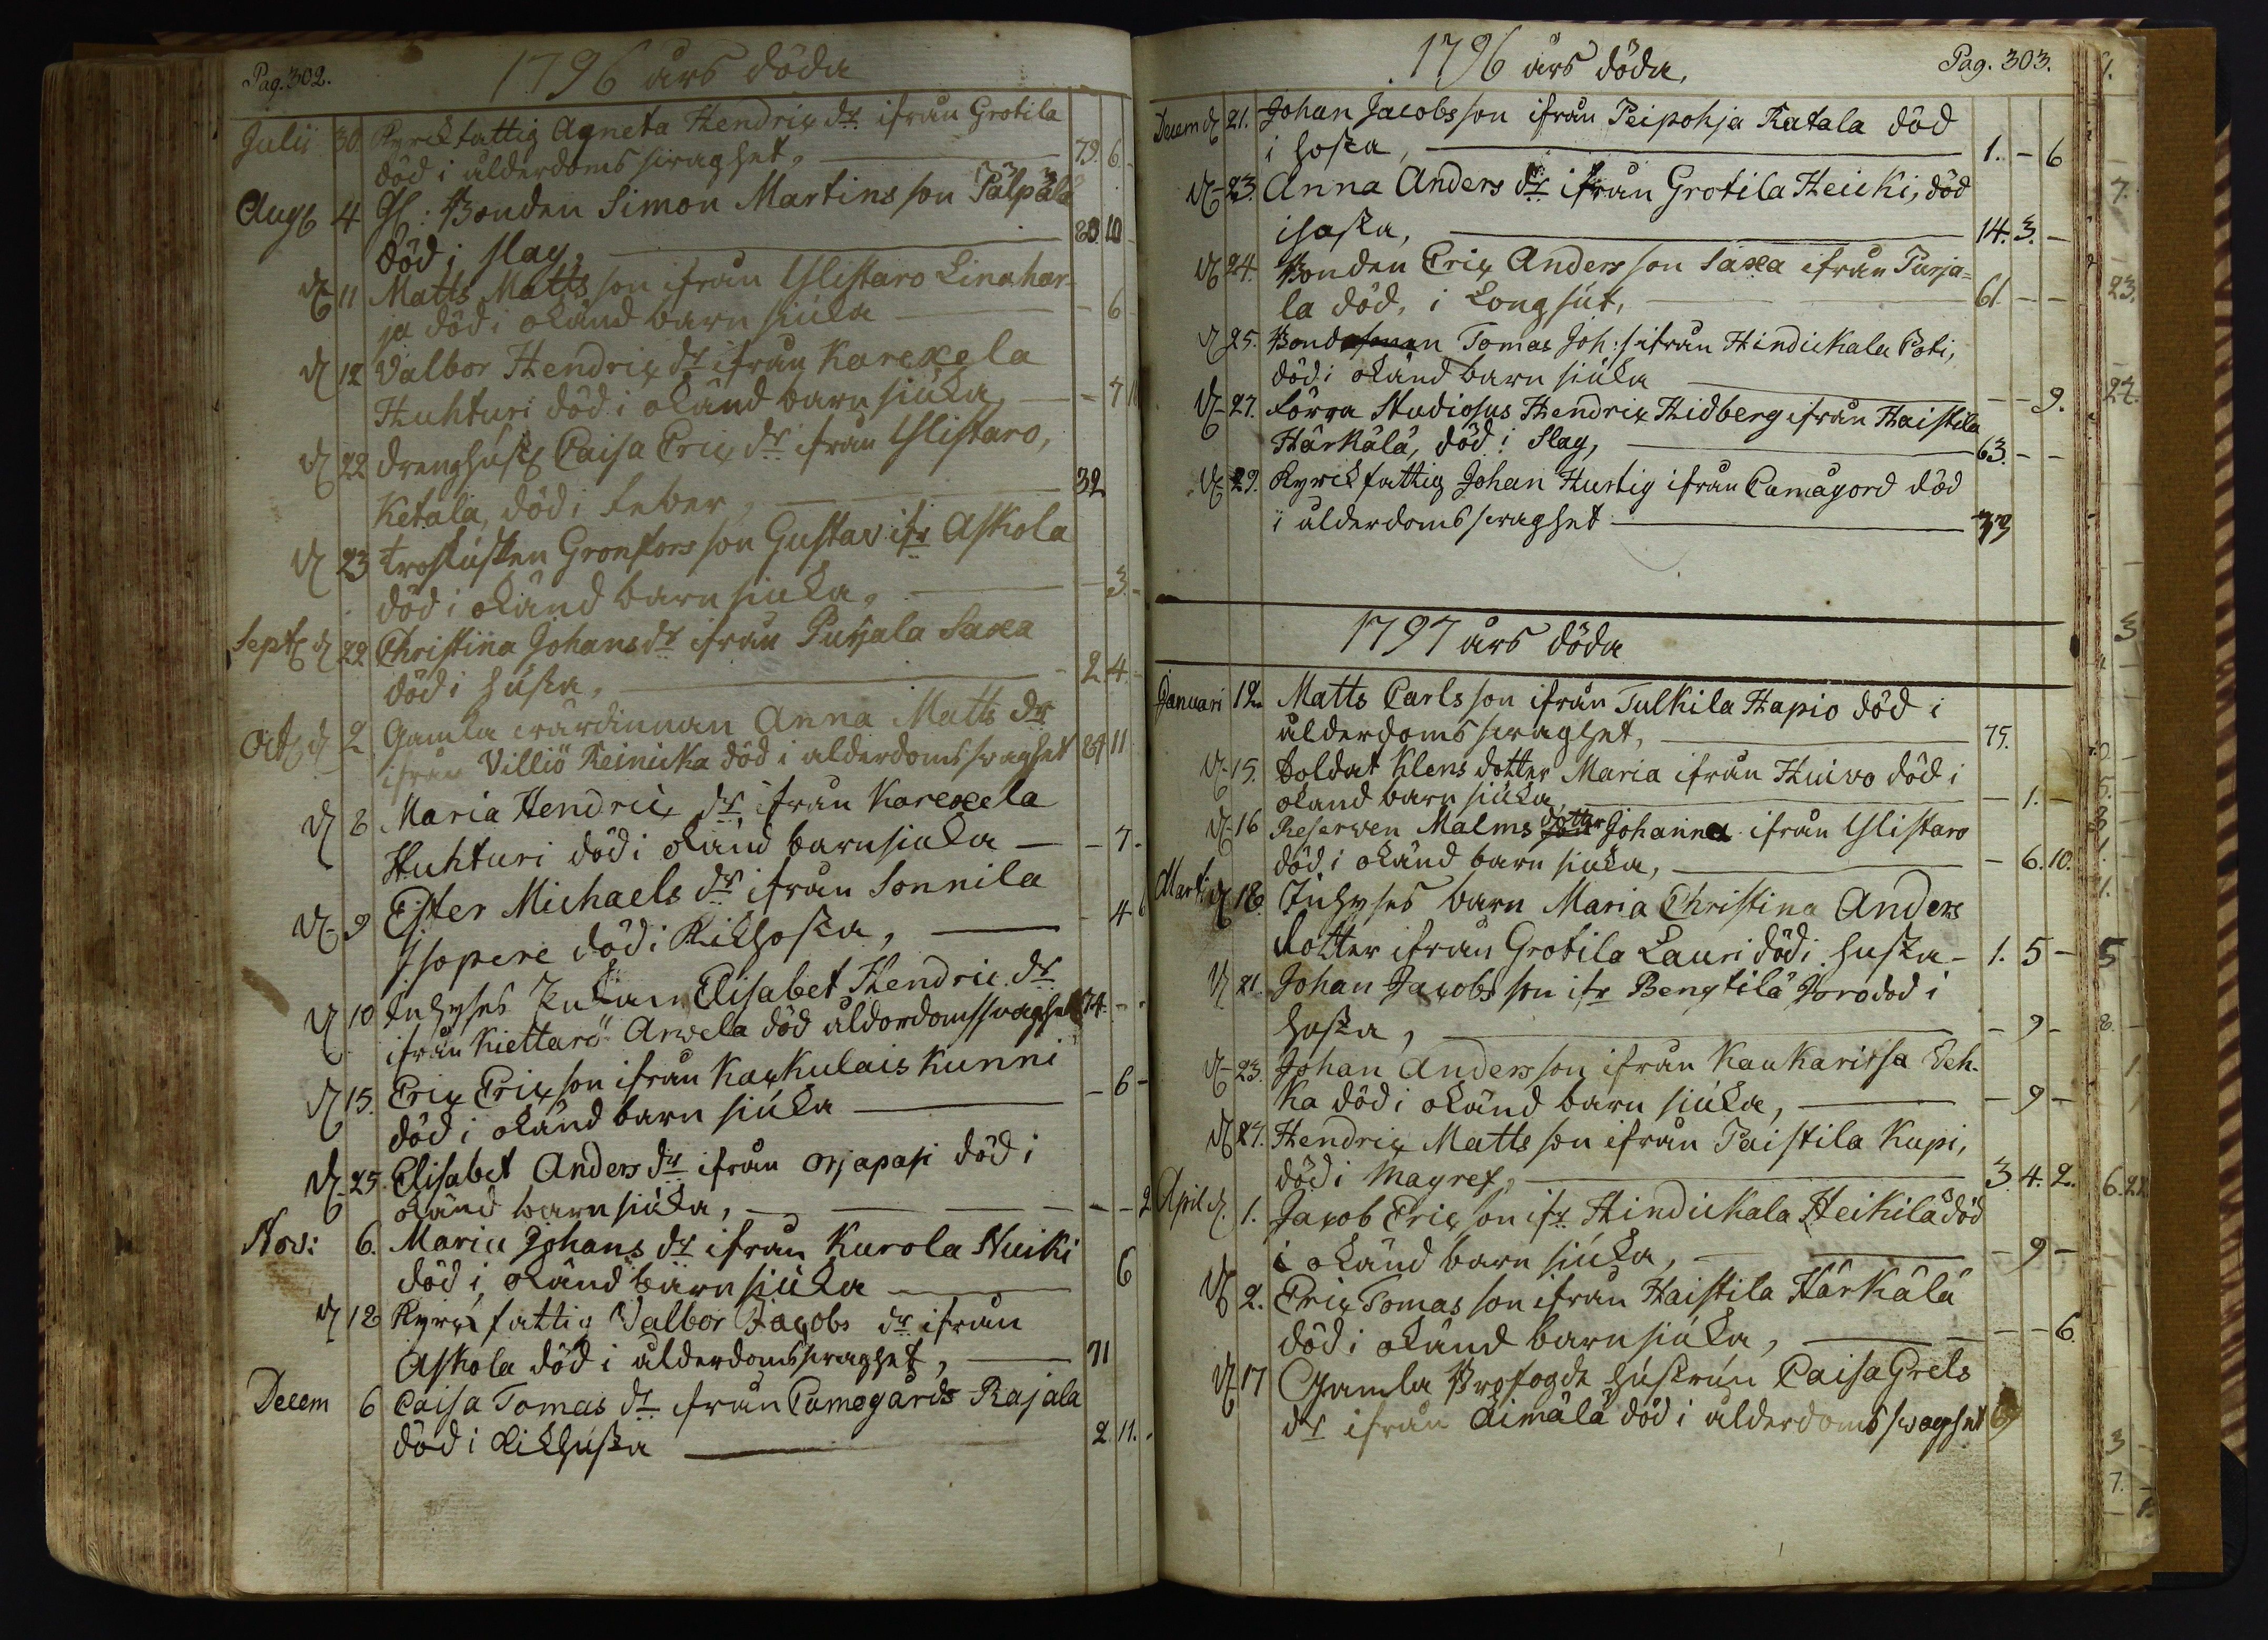 Pag. 302.
1796 års döda
Julii 30 Kyrckfattig Agneta Hendrix dr ifrån Grotila
död i ålderdoms swaghet, 79. 6
Aug 4 Gl: Bonden Simon Martins son Pälpälä
död i slag, 80 10
d 11 Matts Matts son ifrån Ylistaro Linahar-
ja död i okänd barn siuka - 6
d 12 Valbor Hendrix dr ifrån Karexela
Huhturi död i okänd barn siúka, - 7 11
d 22 Drenghúst Caisa Erix dr ifrån Ylistaro,
Ketala, död i feber, 32
d 23 Gronfors son Gustav ifr Askola
död i okänd barn siuka, - 3 -
Sept d 22 Christina Johansdr ifrån Purjala Saxa
död i hústa, 2 4 -
Oct d 2 Gamla wärdinnan Anna Matts dr
ifrån Villiö Reinicka död i alderdoms swaghet 84 11
d 8 Maria Hendric dr ifrån Karexela
Huhturi död i okänd barnsiuka - 7 -
d 9 Ester Michaels dr ifrån Sonnila
Isopere död i Kikhosta, - 4 6
d 10 Inhyses Enkan Elisabet Hendric dr
ifrån Kiettarö Arwela död ålderdomsswaghet 74. - -
d 15. Erix Erixson ifrån Kaxkulais Kunni
död i okänd barn siúka - 6 -
d 25. Elisabet Anders dr ifrån Orjapasi död i
okänd barn siúka, - - 2
Nov: 6. Maria Johans dr ifrån Kurola Nuiki
död i, okänd barn siúka 6
d 12 Kyrck fattig Valbor Jacobs dr ifrån
Askola död i ålderdoms swaghet, 71
Decem 6 Caisa Tomas dr ifrån Cumogårds Rajala
död i Kikhústa 2. 11. -
1796 års döda,
Pag. 303.
Decem d 21. Johan Jacobs son ifrån Peipohja Ratala död
i hosta, 1. - 6
d 23. Anna Anders dr ifrån Grotila Heicki, död
i hosta, 14. 3. -
d 24. Bonden Erix Anders son Saxa ifrån Purja=
la död, i Longsút, 61. - -
d 25. Bondesonen Tomas Joh: s ifrån Hindickala Poti,
död i okänd barn siúka - - 9.
d 27. Förra Studiosus Hendrix Hidberg ifrån Haistila
Härkälä, död i Slag, 63. - -
d 29. Kyrckfattig Johan Hurtig ifrån Cumågord död
i ålderdoms swaghet 73
1797 års döda
Januari 12. Matts Carls son ifrån Tulkila Hapio död i
ålderdoms swaghet, 75.
d 15. Soldat Klens dotter Maria ifrån Huiwo död i
okand barn siúka, - 1. -
d 16 Reserwen Malms dotter Johanna ifrån Ylistaro
död i okänd barn siuka, - 6. 10.
Marti d 18. Inhyses barn Maria Christina Anders
dotter ifrån Grotila Lauri död i husta - 1. 5 -
d 21. Johan Jacobs son ifr Bengtilä Poro död i
hosta, - 9 -
d 23. Johan Anders son ifrån Kaukaritsa Veh-
ka död i okänd barn siúka, - 9 -
d 27. Hendrix Matts son ifrån Paistila Kupi,
död i Magref, 3. 4. 2.
April d. 1. Jacob Erix son ifr Hindickala Heikilä död
i okänd barn siúka, - 9 -
d 2. Erix Tomas son ifrån Haistila Härkälä
död i okänd barn siúka, - - 6
d 17 Gamla Profogde hústrún Caisa Grels
dr ifrån Äimälä död i ålderdoms swaghet